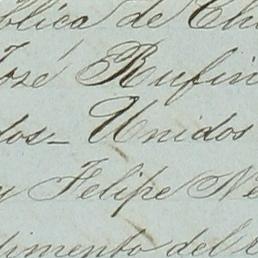 ública de Chi
José Rufin
dos- Unidos
y Felipe Ne
dimento del